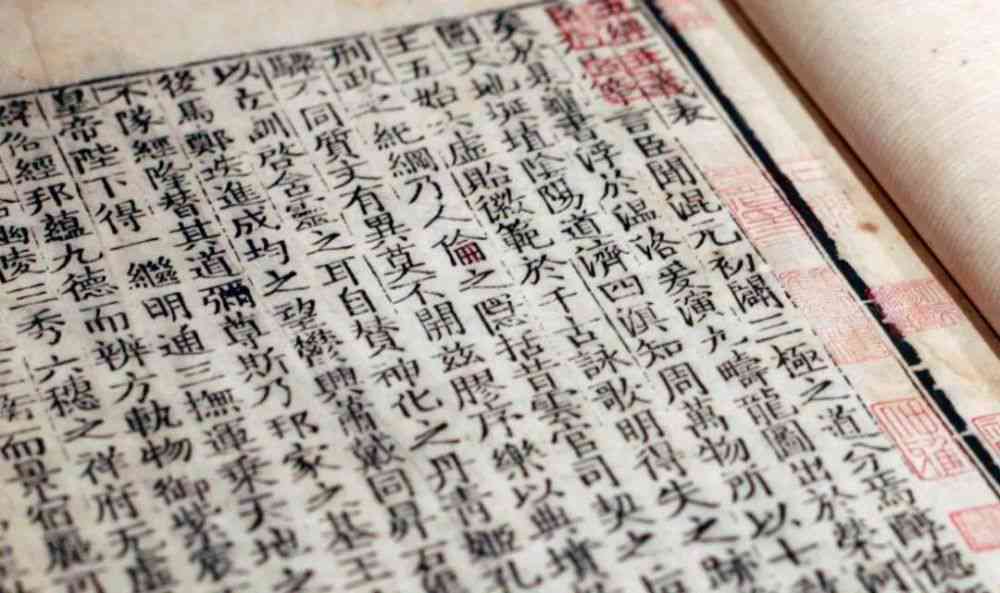 五經正義表
言臣聞混元初闢三極之道分焉醇德
矣於是龜書浮於温洛爰演九疇龍圖出於榮河
圍天地埏埴陰陽道濟四溟知周萬物所以七
王五始六虛貽徽範於千古詠歌明得失之跡
刑政之紀綱乃人倫之隱括昔雲官司契之后
驟不同質文有異莫不開茲膠序樂以典墳
以立訓啓含靈之耳目贊神化之丹青姬孔
後馬鄭迭進成均之望鬱興蕭戴同昇石渠
不墜經隆替其道彌尊斯乃邦家之基王
皇帝陛下得一繼明通三撫運乘天地之
緯俗經邦蘊九德而辨方軌物御紫宸
洽幽陵三秀六穗之祥府无虛
衡而景宿麗可